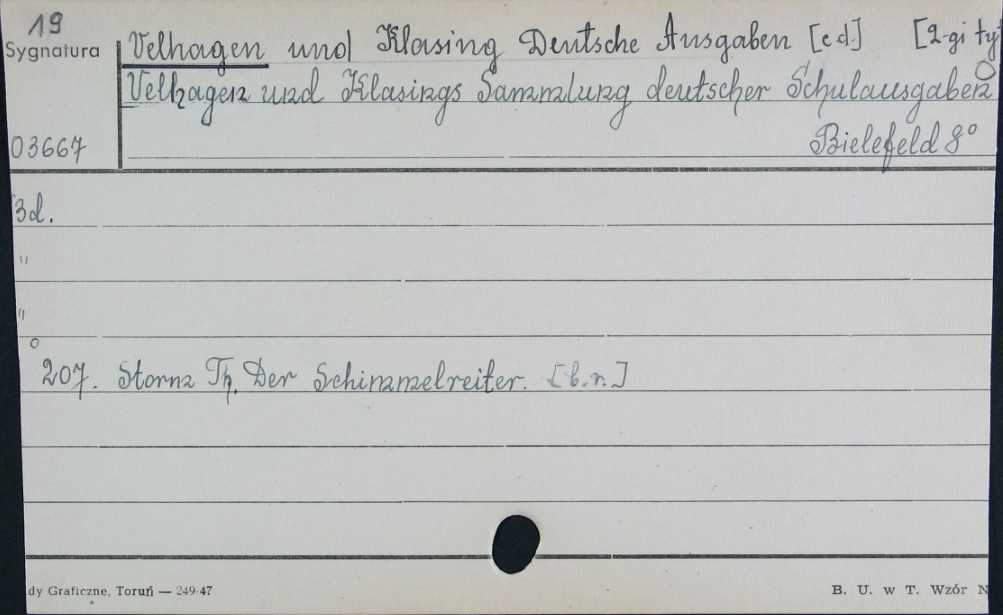 19
Sygnatura
Velhagen und Klasing Deutsche Ausgaben [cd.] [2-gi ty
Velhagen und Klasings Sammlung deutscher Schulausgaben
03667
Bielefeld 8°
3d.
"
"
207. Storm Th. Der Schimmelreiter. [b.r.]
dy Graficzne, Toruń — 249-47
B. U. w T. Wzór N